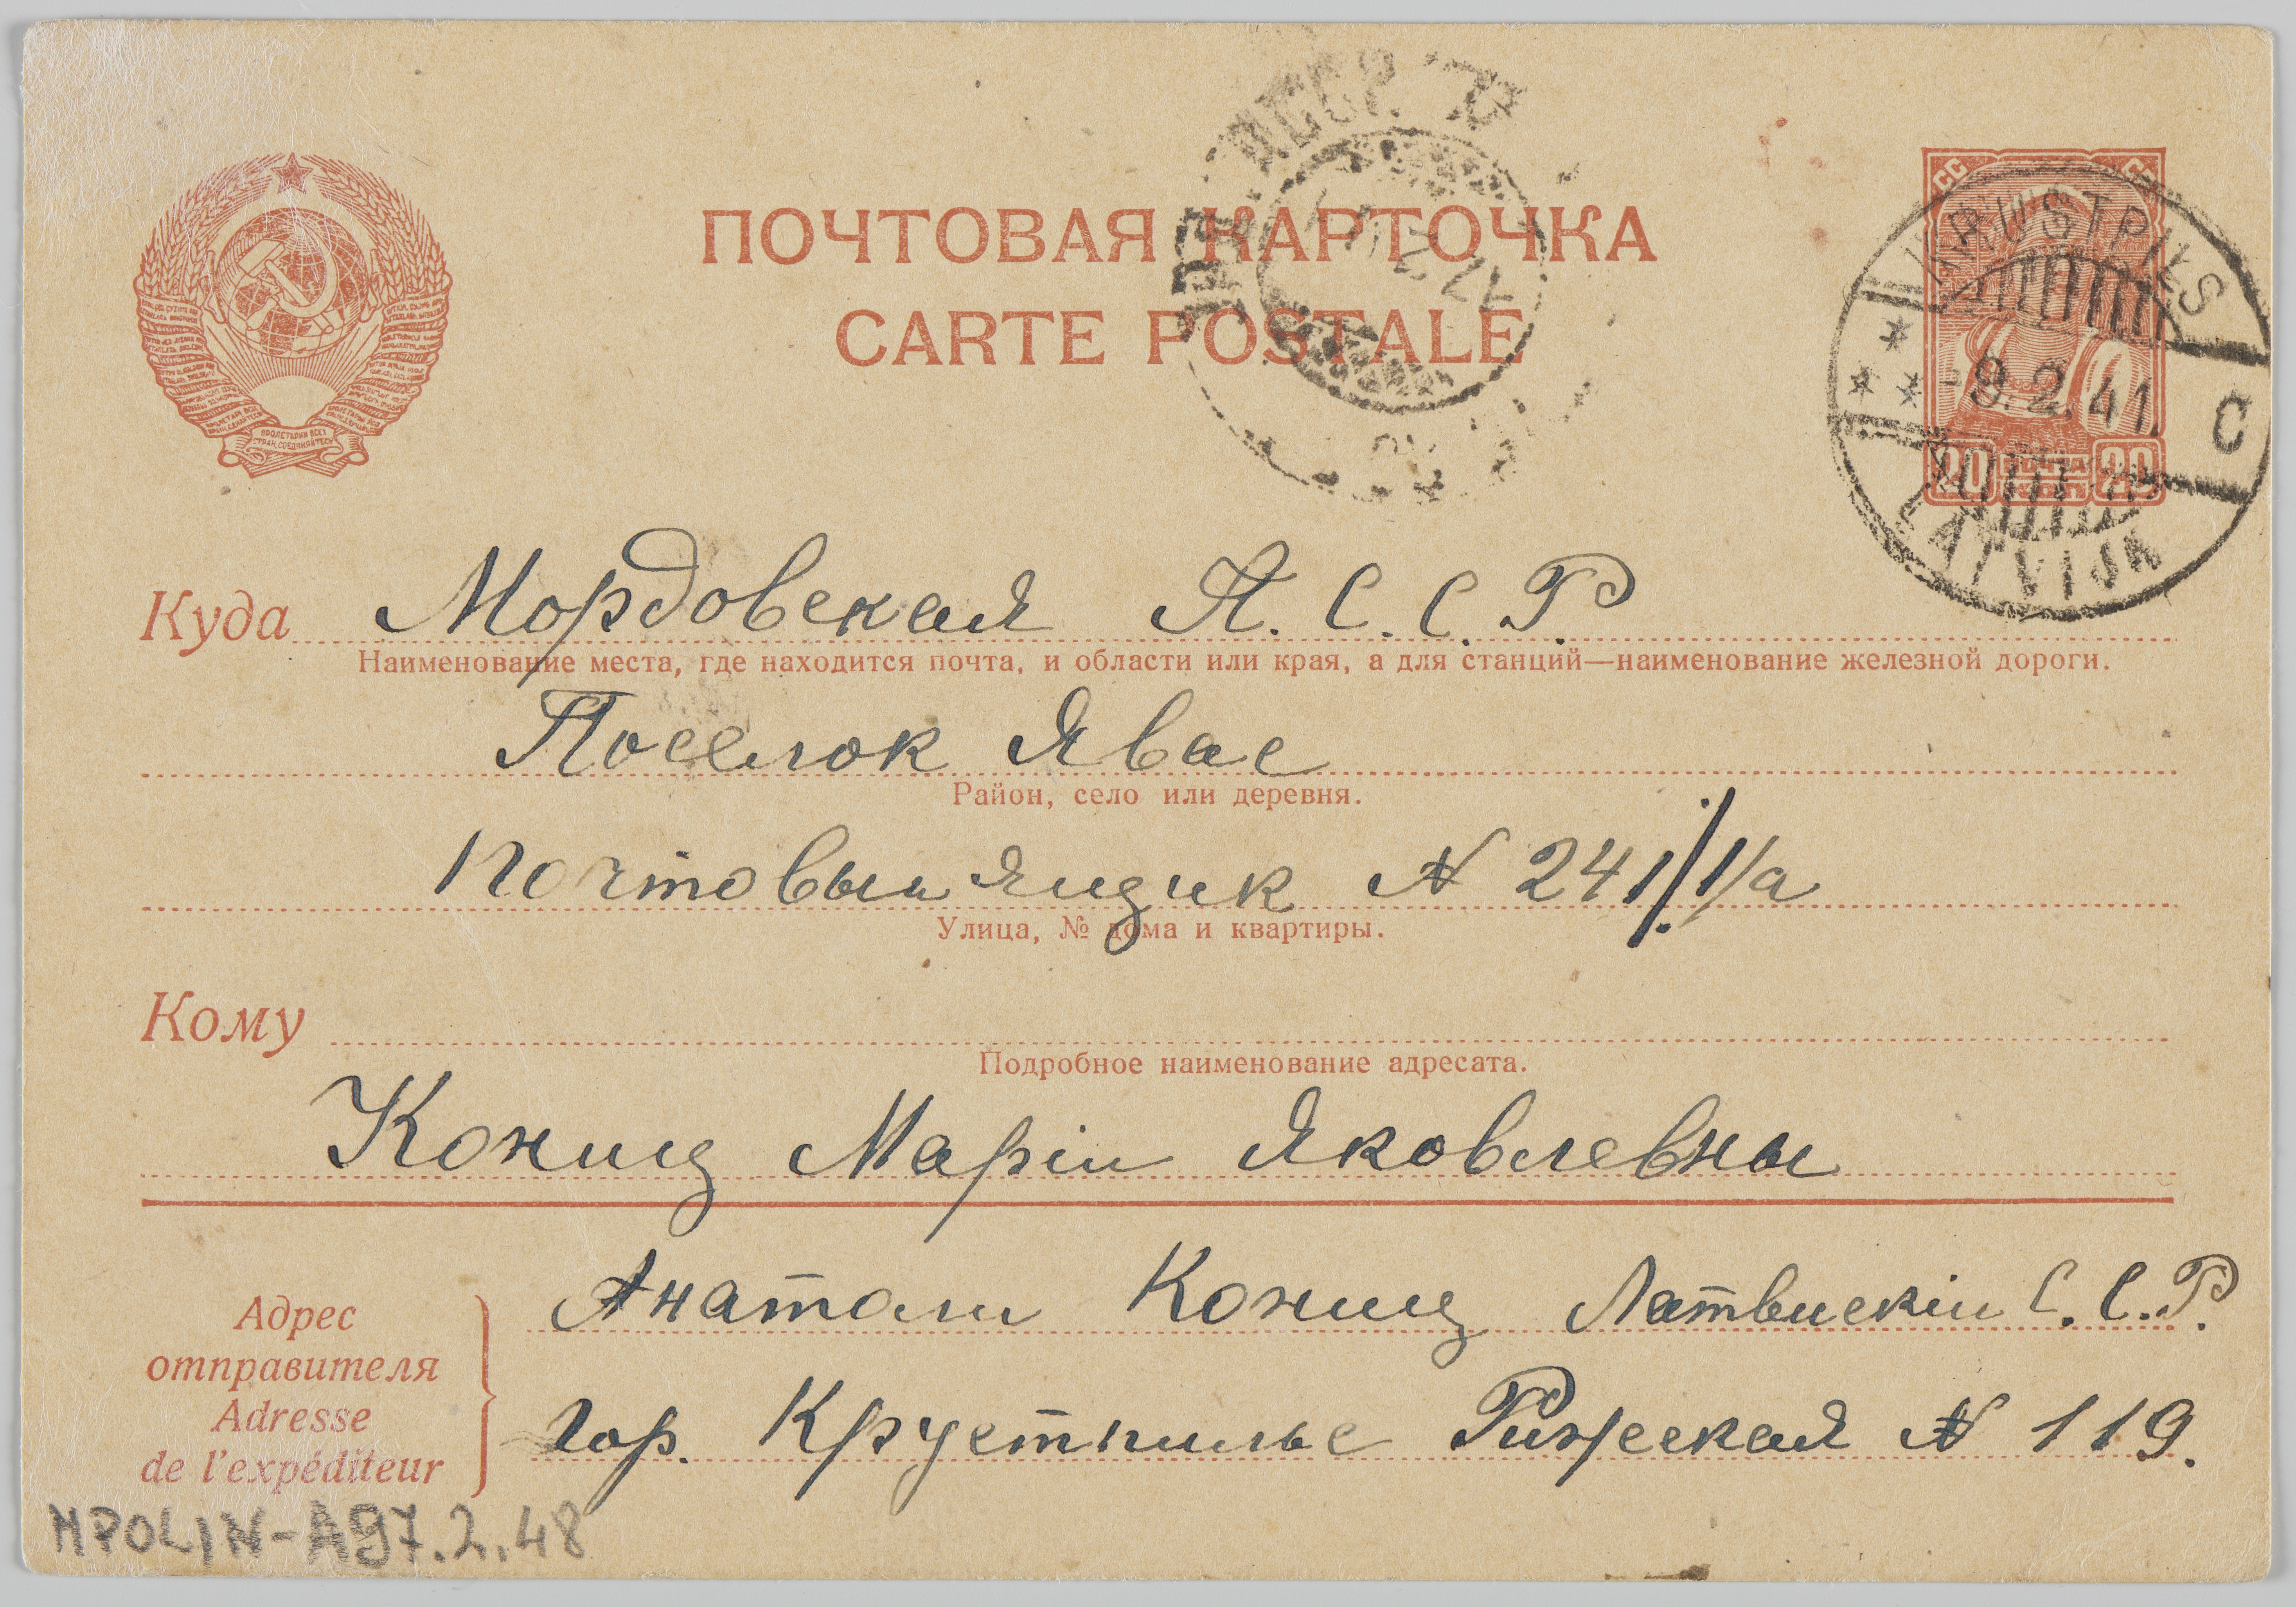 ПОЧТОВАЯ КАРТОЧКА
CARTE POSTALE
ПРОЛЕТАРИИ ВСЕХ
СТРАН, СОЕДИНЯЙТЕСЬ
KRUSTPILS
9.2.41.
C
LATVIJA
20 ПОЧТА 20
Куда Мордовская А. С. С. Р.
Наименование места, где находится почта, и области или края, а для станций—наименование железной дороги.
Поселок Явас
Район, село или деревня.
Почтовыи ящик N 241/1/а
Улица, № дома и квартиры.
Кому
Подробное наименование адресата.
Конищ Маріи Яковлевны
Адрес
отправителя
Adresse
de l'expéditeur
Анатоли Конищ Латвискіи С. С. Р.
Гор. Крустпильс Рижская N 119.
MPOLIN-A97.2.48